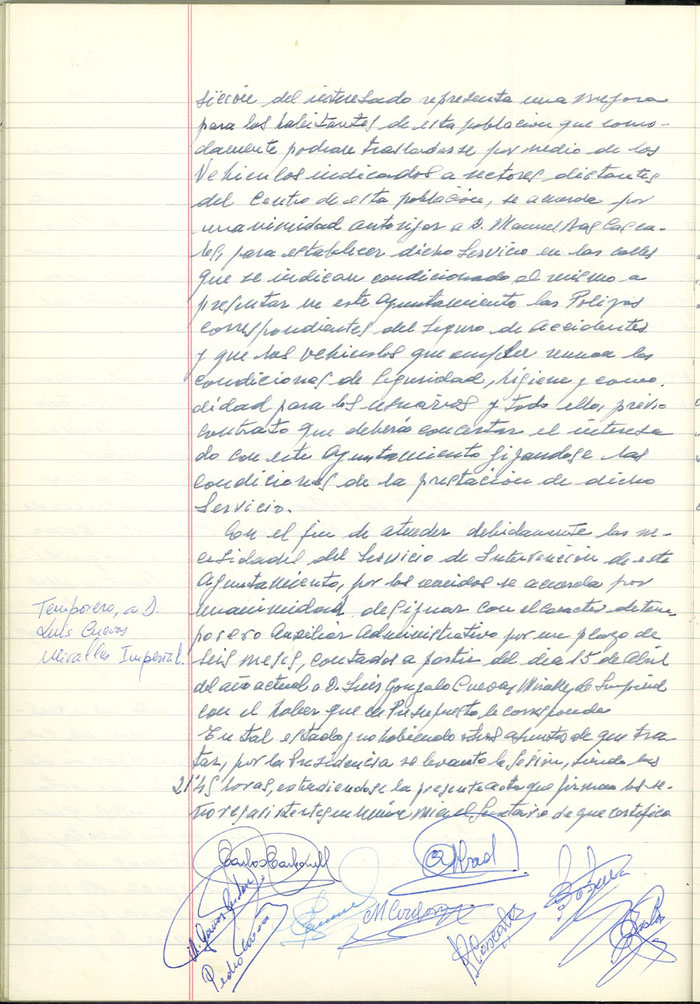 sición del interesado representa una mejora
para los habitantes de esta población que como-
damente podrán trasladarse por medio de los
Vehículos indicados a sectores distantes
del Centro de esta población, se acuerda por
unanimidad autorizar a D. Manuel
para establecer dicho Servicio en las calles
que se indican condicionado al mismo a
presentar en este Ayuntamiento las Polizas
correspondientes del Seguro de Accidentes
y que los vehículos que emplee reunan las
condiciones de seguridad, higiene y como-
didad para los usuarios y todo ello, previo
contrato que deberá concertar el interesa
do con este Ayuntamiento fijandose las
condiciones de la prestacion de dicho
Servicio.
Con el fin de atender debidamente las ne-
cesidades del Servicio de Intervención de este
Ayuntamiento, por los reunidos se acuerda por
unanimidad designar con el caracter de tem-
porero Auxiliar Administrativo por un plazo de
seis meses, contados a partir del dia 15 de Abril
del año actual a D. Luis Gonzalo Cuevas Miralles de Imperial
con el haber que en Presupuesto le corresponda
Temporero, a D.
Luis Cuevas
Miralles Imperial.
En tal estado y no habiendo otros asuntos de que tra-
tar, por la Presidencia se levanto la Sesión, siendo las
21'45 horas, extendiendose la presente acta que firman los se-
ñores asistentes en unión, mi el Secretario de que certifico
Carlos Carbonell
Abad
M Cordoba
Pedro